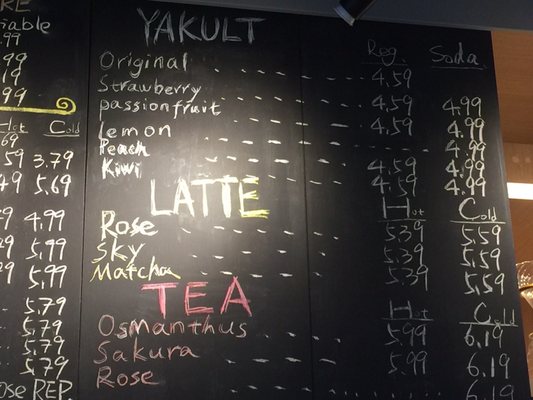 RE
iable
.99
.99
.19
.99
Hot Cold
.69
.59 3.79
.49 5.69
4.99
5.99
5.99
5.79
5.79
5.79
5.79
REP.
YAKULT
Reg. Soda
Original 4.59
Strawberry 4.59 4.99
passionfruit 4.59 4.99
Lemon 4.99
Peach 4.59 4.99
Kiwi 4.59 4.99
LATTE Hot Cold
Rose 5.39 5.59
SKY 5.39 5.59
Matcha 5.39 5.59
TEA Hot Cold
Osmanthus 5.99 6.19
Sakura 5.99 6.19
Rose 6.19